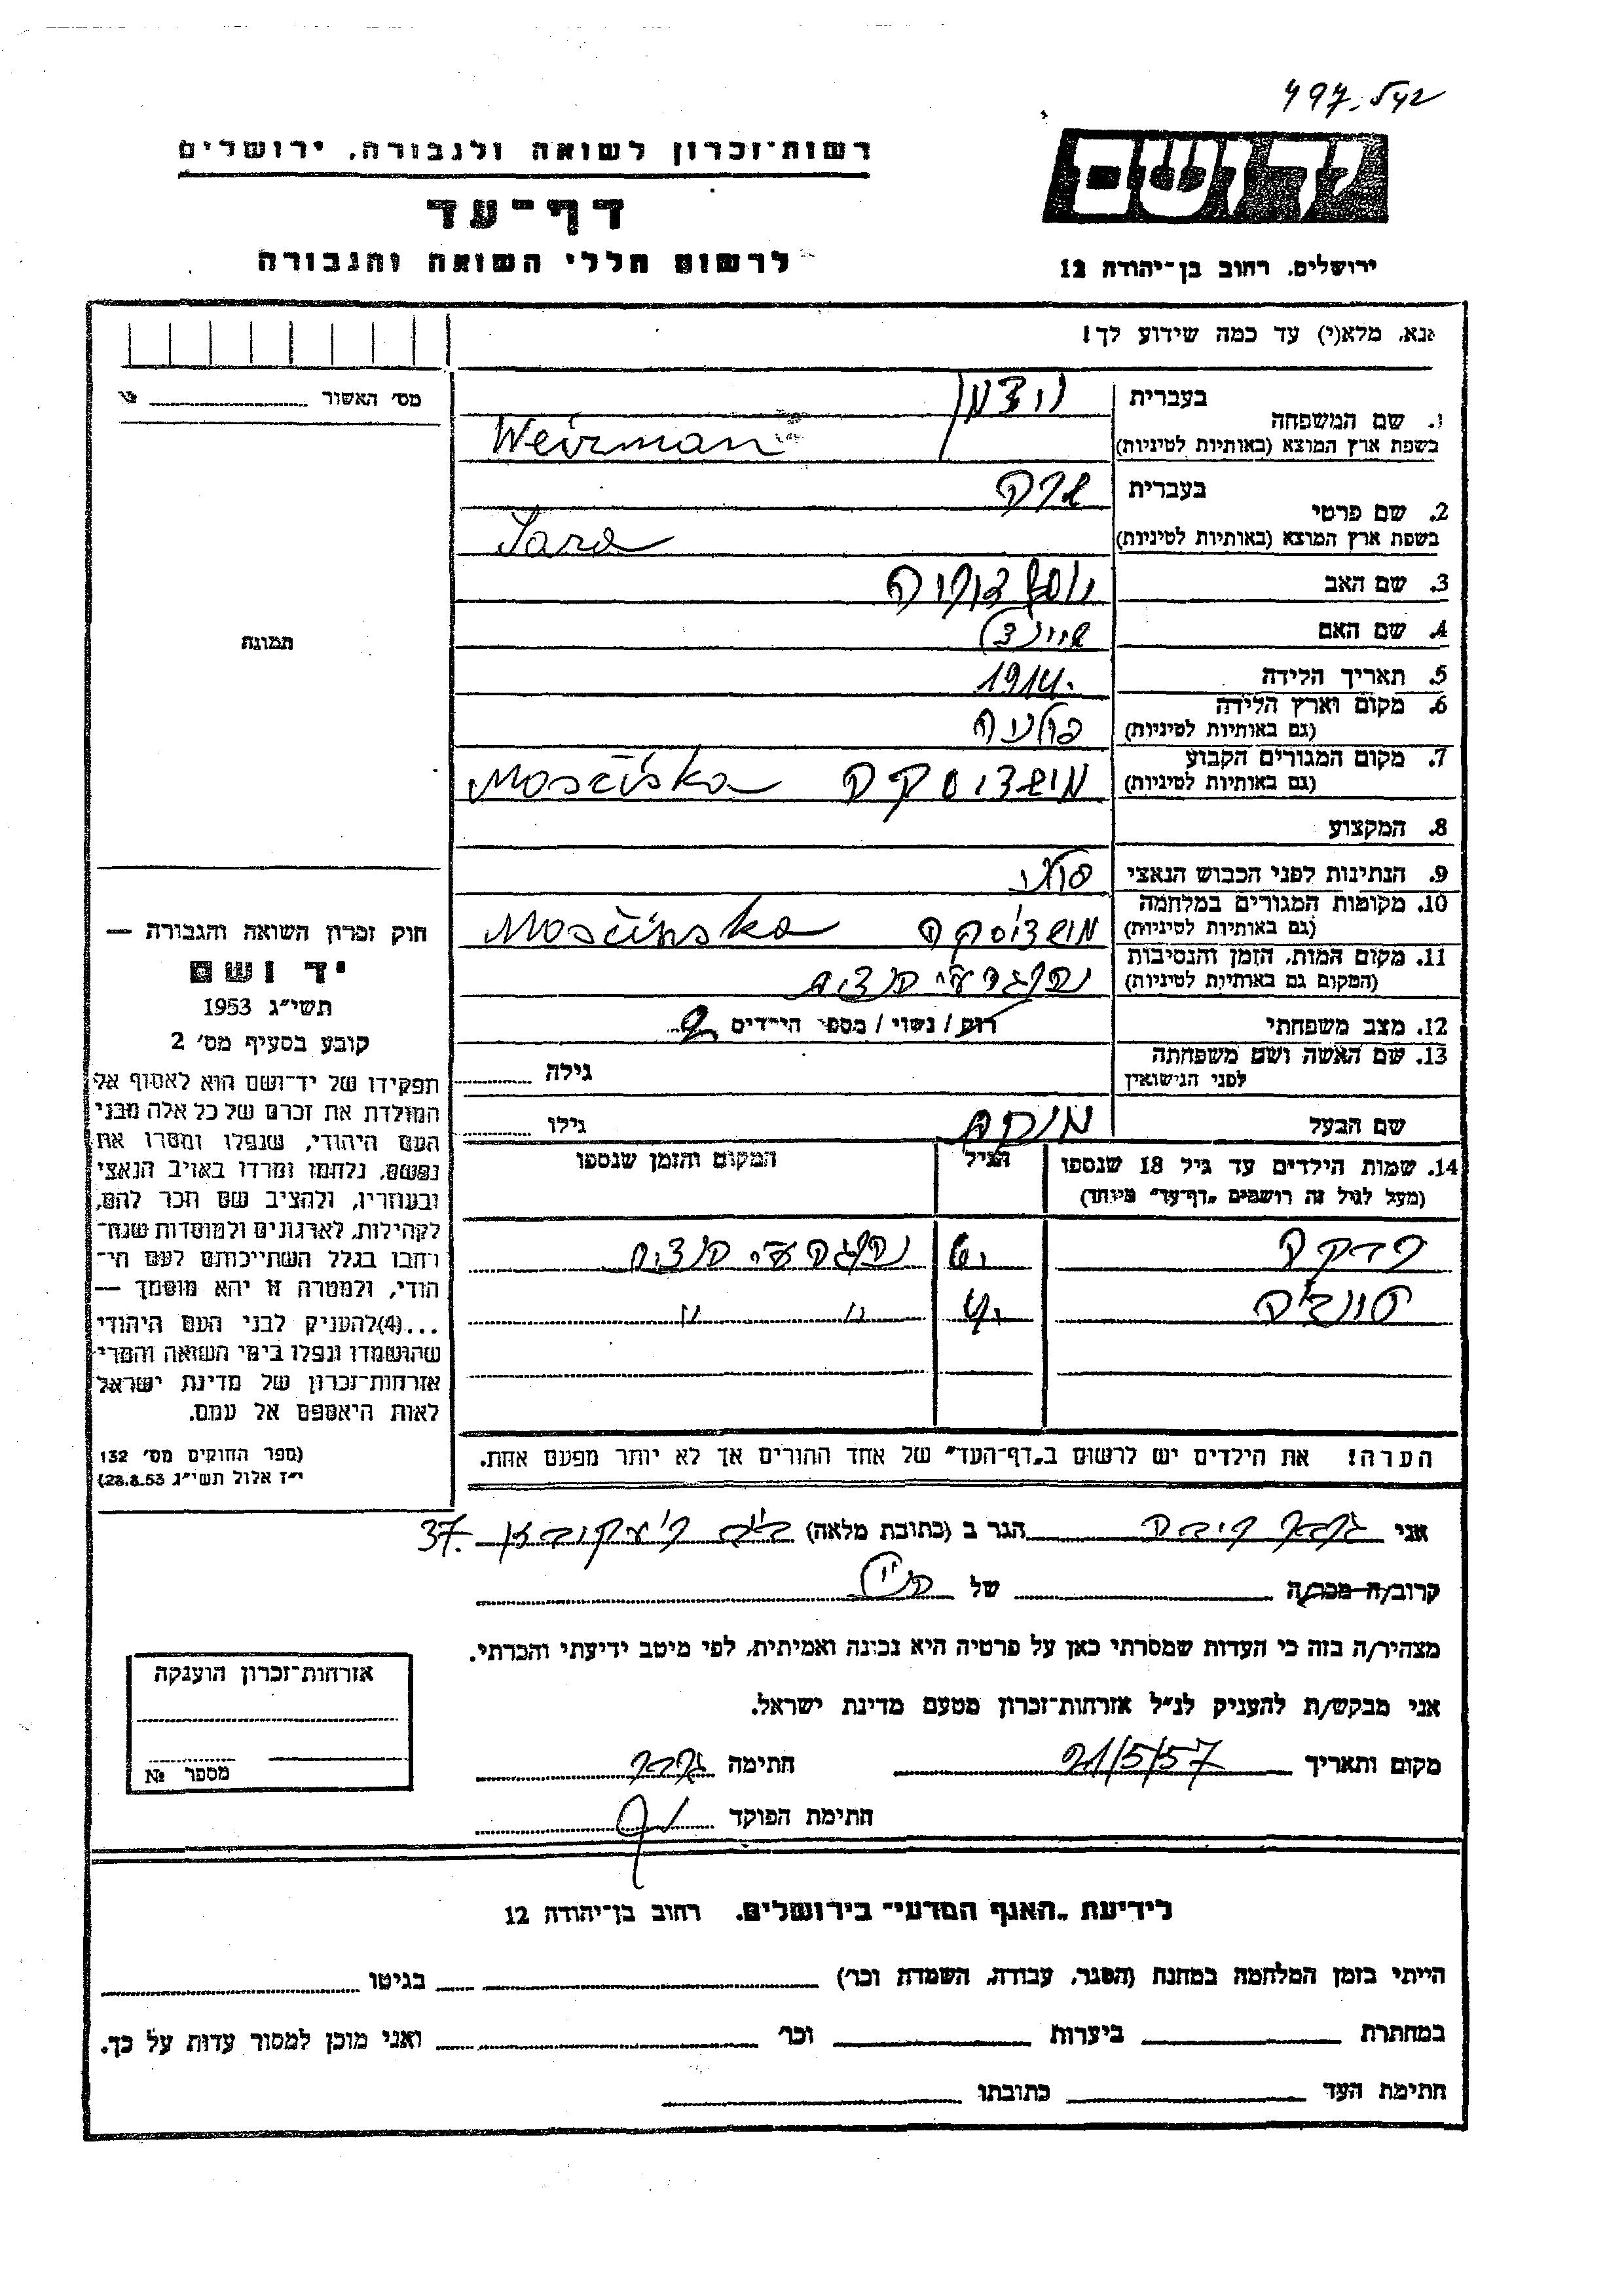 רשות־זכרון לשואה ולגבורה. ירושלים
דף־עד
לרשום חללי השואה והגבורה
ידושם
ירושלים. רחוב בן־יהודה 12
אנא. מלא(י) עד כמה שידוע לך!
מס׳ האשור
1. שם המשפחה
בעברית
בשפת ארץ המוצא (באותיות לטיניות) Weizman
2. שם פרטי
בעברית שרה
בשפת ארץ המוצא (באותיות לטיניות) Sara
3. שם האב יוסף
4. שם האם
5. תאריך הלידה 1914
6. מקום וארץ הלידה
(גם באותיות לטיניות) פולניה
7. מקום המגורים הקבוע
(גם באותיות לטיניות) מושציסקה Mosciska
8. המקצוע
9. הנתינות לפני הכבוש הנאצי פולני
10. מקומות המגורים במלחמה
(גם באותיות לטיניות) מושציסקה Moscinska
11. מקום המות, הזמן והנסיבות
(המקום גם באותיות לטיניות) נהרגה ע״י הנצים
12. מצב משפחתי רוק / נשוי / מספר הילדים 2
13. שם האשה ושם משפחתה
לפני הנישואין
גילה
שם הבעל
גילו
14. שמות הילדים עד גיל 18 שנספו
(מעל לגיל זה רושמים „דף־עד״ מיוחד)
הגיל
המקום והזמן שנספו
נהרגה ע״י הנצים
״ ״
הערה! את הילדים יש לרשום ב„דף־העד״ של אחד ההורים אך לא יותר מפעם אחת.
תמונה
חוק זכרון השואה והגבורה —
יד ושם
תשי״ג 1953
קובע בסעיף מס׳ 2
תפקידו של יד־ושם הוא לאסוף אל
המולדת את זכרם של כל אלה מבני
העם היהודי, שנפלו ומסרו את
נפשם, נלחמו ומרדו באויב הנאצי
ובעוזריו, ולהציב שם וזכר להם,
לקהילות, לארגונים ולמוסדות שנח־
רבו בגלל השתייכותם לעם הי־
הודי, ולמטרה זו יהא מוסמך —
...(4)להעניק לבני העם היהודי
שהושמדו ונפלו בימי השואה והמרי
אזרחות־זכרון של מדינת ישראל
לאות היאספם אל עמם.
(ספר החוקים מס׳ 132
י״ז אלול תשי״ג 28.8.53)
אני הגר ב (כתובת מלאה) 37
קרוב/ה מכר/ה של
מצהיר/ה בזה כי העדות שמסרתי כאן על פרטיה היא נכונה ואמיתית, לפי מיטב ידיעתי והכרתי.
אני מבקש/ת להעניק לנ״ל אזרחות־זכרון מטעם מדינת ישראל.
מקום ותאריך 21/5/57 חתימה
חתימת הפוקד
אזרחות־זכרון הוענקה
מספר №
לידיעת „האגף המדעי״ בירושלים. רחוב בן־יהודה 12
הייתי בזמן המלחמה במחנה (הסגר, עבודה, השמדה וכר׳) בגיטו
במחתרת ביערות וכר׳ ואני מוכן למסור עדות על כך.
חתימת העד כתובתו